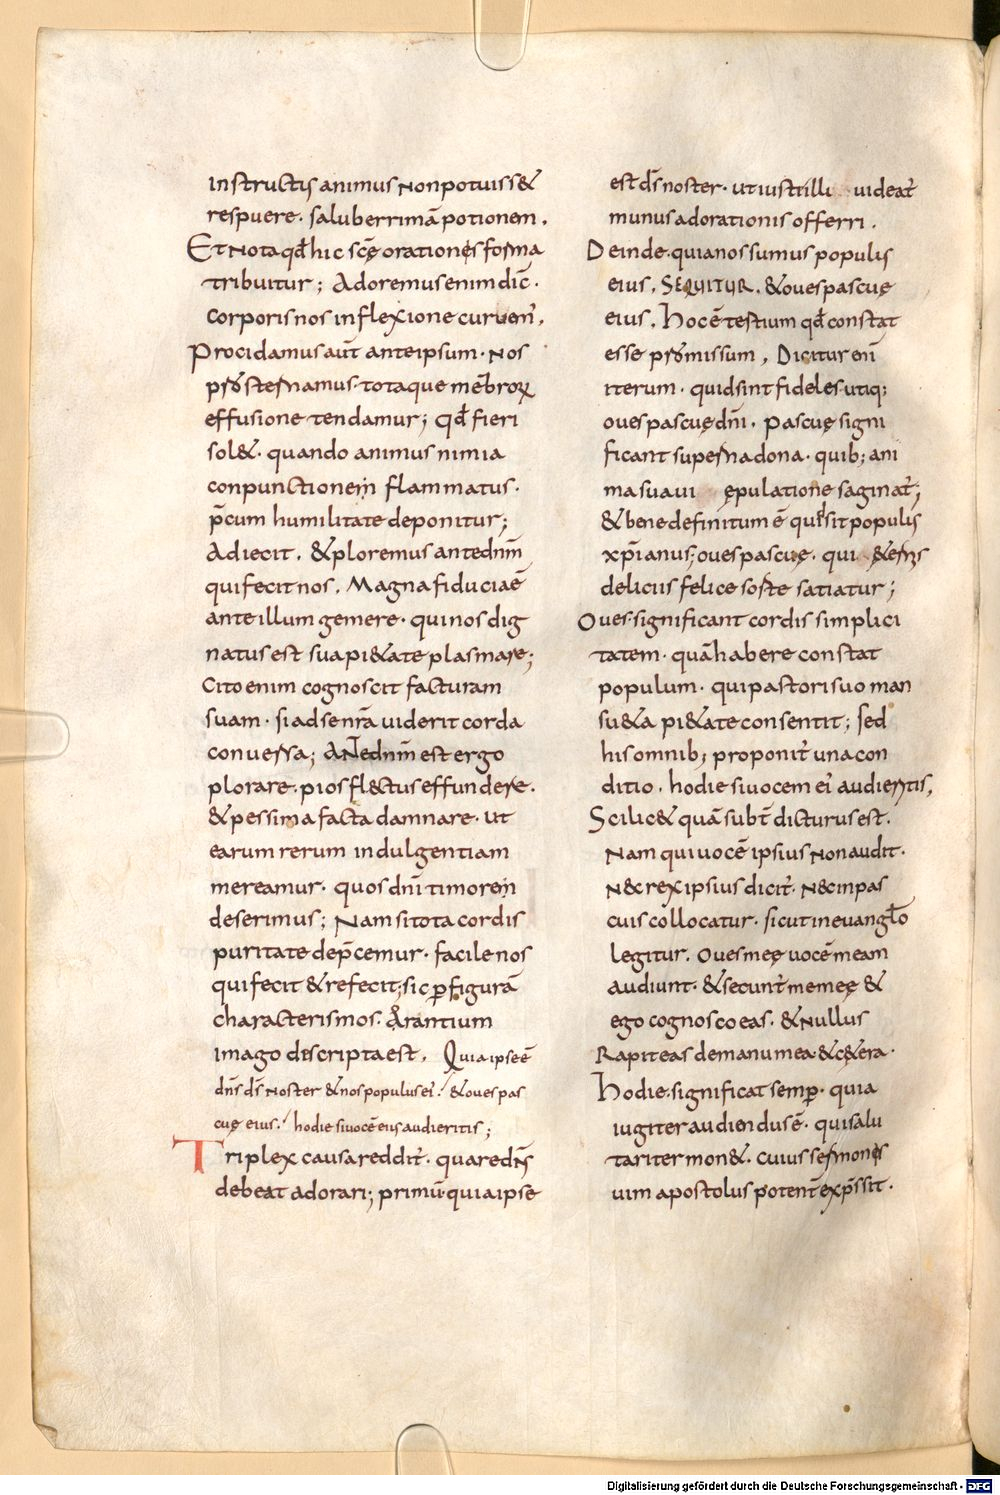 instructis animus non potuiss&
respuere. saluberrimā potionem.
Et nota qđ hic scę orationes forma
tribuitur; Adoremus enim dic̄.
corporis nos inflexione curuem̄.
Procidamus aūt ante ipsum. Nos
ꝓsternamus totaque mēbroꝝ
effusione tendamur; qđ fieri
sol&. quando animus nimia
conpunctionem flammatus.
p̄cum humilitate deponitur;
Adiecit. &ploremus ante dnm̄
qui fecit nos. Magna fiducia ē
ante illum gemere. qui nos dig
natus est sua pi&ate plasmare;
Cito enim cognoscit facturam
suam. si ad se nrā uiderit corda
conuersa; Ante dnm̄ est ergo
plorare. pios fl&us effundere.
&pessima facta damnare. ut
earum rerum indulgentiam
mereamur. quos dnī timorem
deserimus; Nam si tota cordis
puritate dep̄cemur. facile nos
qui fecit &refecit; sic ꝑ figurā
characterismos. Arantium
imago descripta est. Quia ipse ē
dn̄s d̄s noster &nos populus ei'. &oues pas
cuę eius. hodie si uocē eius audieritis;
Triplex causa reddit'. quare dn̄s
debeat adorari; primū. quia ipse
est d̄s noster. ut iuste illi uideat'
munus adorationis offerri.
Deinde. quia nos sumus populis
eius. SEQUITUR. &oues pascuę
eius. Hoc ē testium qđ constat
esse ꝓmissum, Dicitur eni̅
iterum. quid sint fideles. utiq;
oues pascuę dnī. pascuę signi
ficant superna dona. quib; ani
ma suaui ępulatione saginat';
&bene definitum ē quid sit populis
xp̄ianus; oues pascuę. qui &ernis
deliciis felice sorte satiatur;
Oues significant cordis simplici
tatem. quā habere constat
populum. qui pastori suo man
su&a pi&ate consentit; sed
his omnib; proponit' una con
ditio. hodie si uocem ei' audieritis,
Scilic& quā subt̄ dicturus est.
Nam qui uocē ipsius non audit.
N&rex ipsius dicit'. N&in pas
cuis collocatur. sicut in euanglo
legitur. Oues meę uocē meam
audiunt. &secunt' me meę &
ego cognosco eas. &nullus
Rapit eas de manu mea &c&era.
Hodie. significat semꝑ. quia
iugiter audiendus ē. qui salu
tariter mon&. cuius sermonis
uim apostolus potent' exp̄ssit.
Digitalisierung gefördert durch die Deutsche Forschungsgemeinschaft - DFG